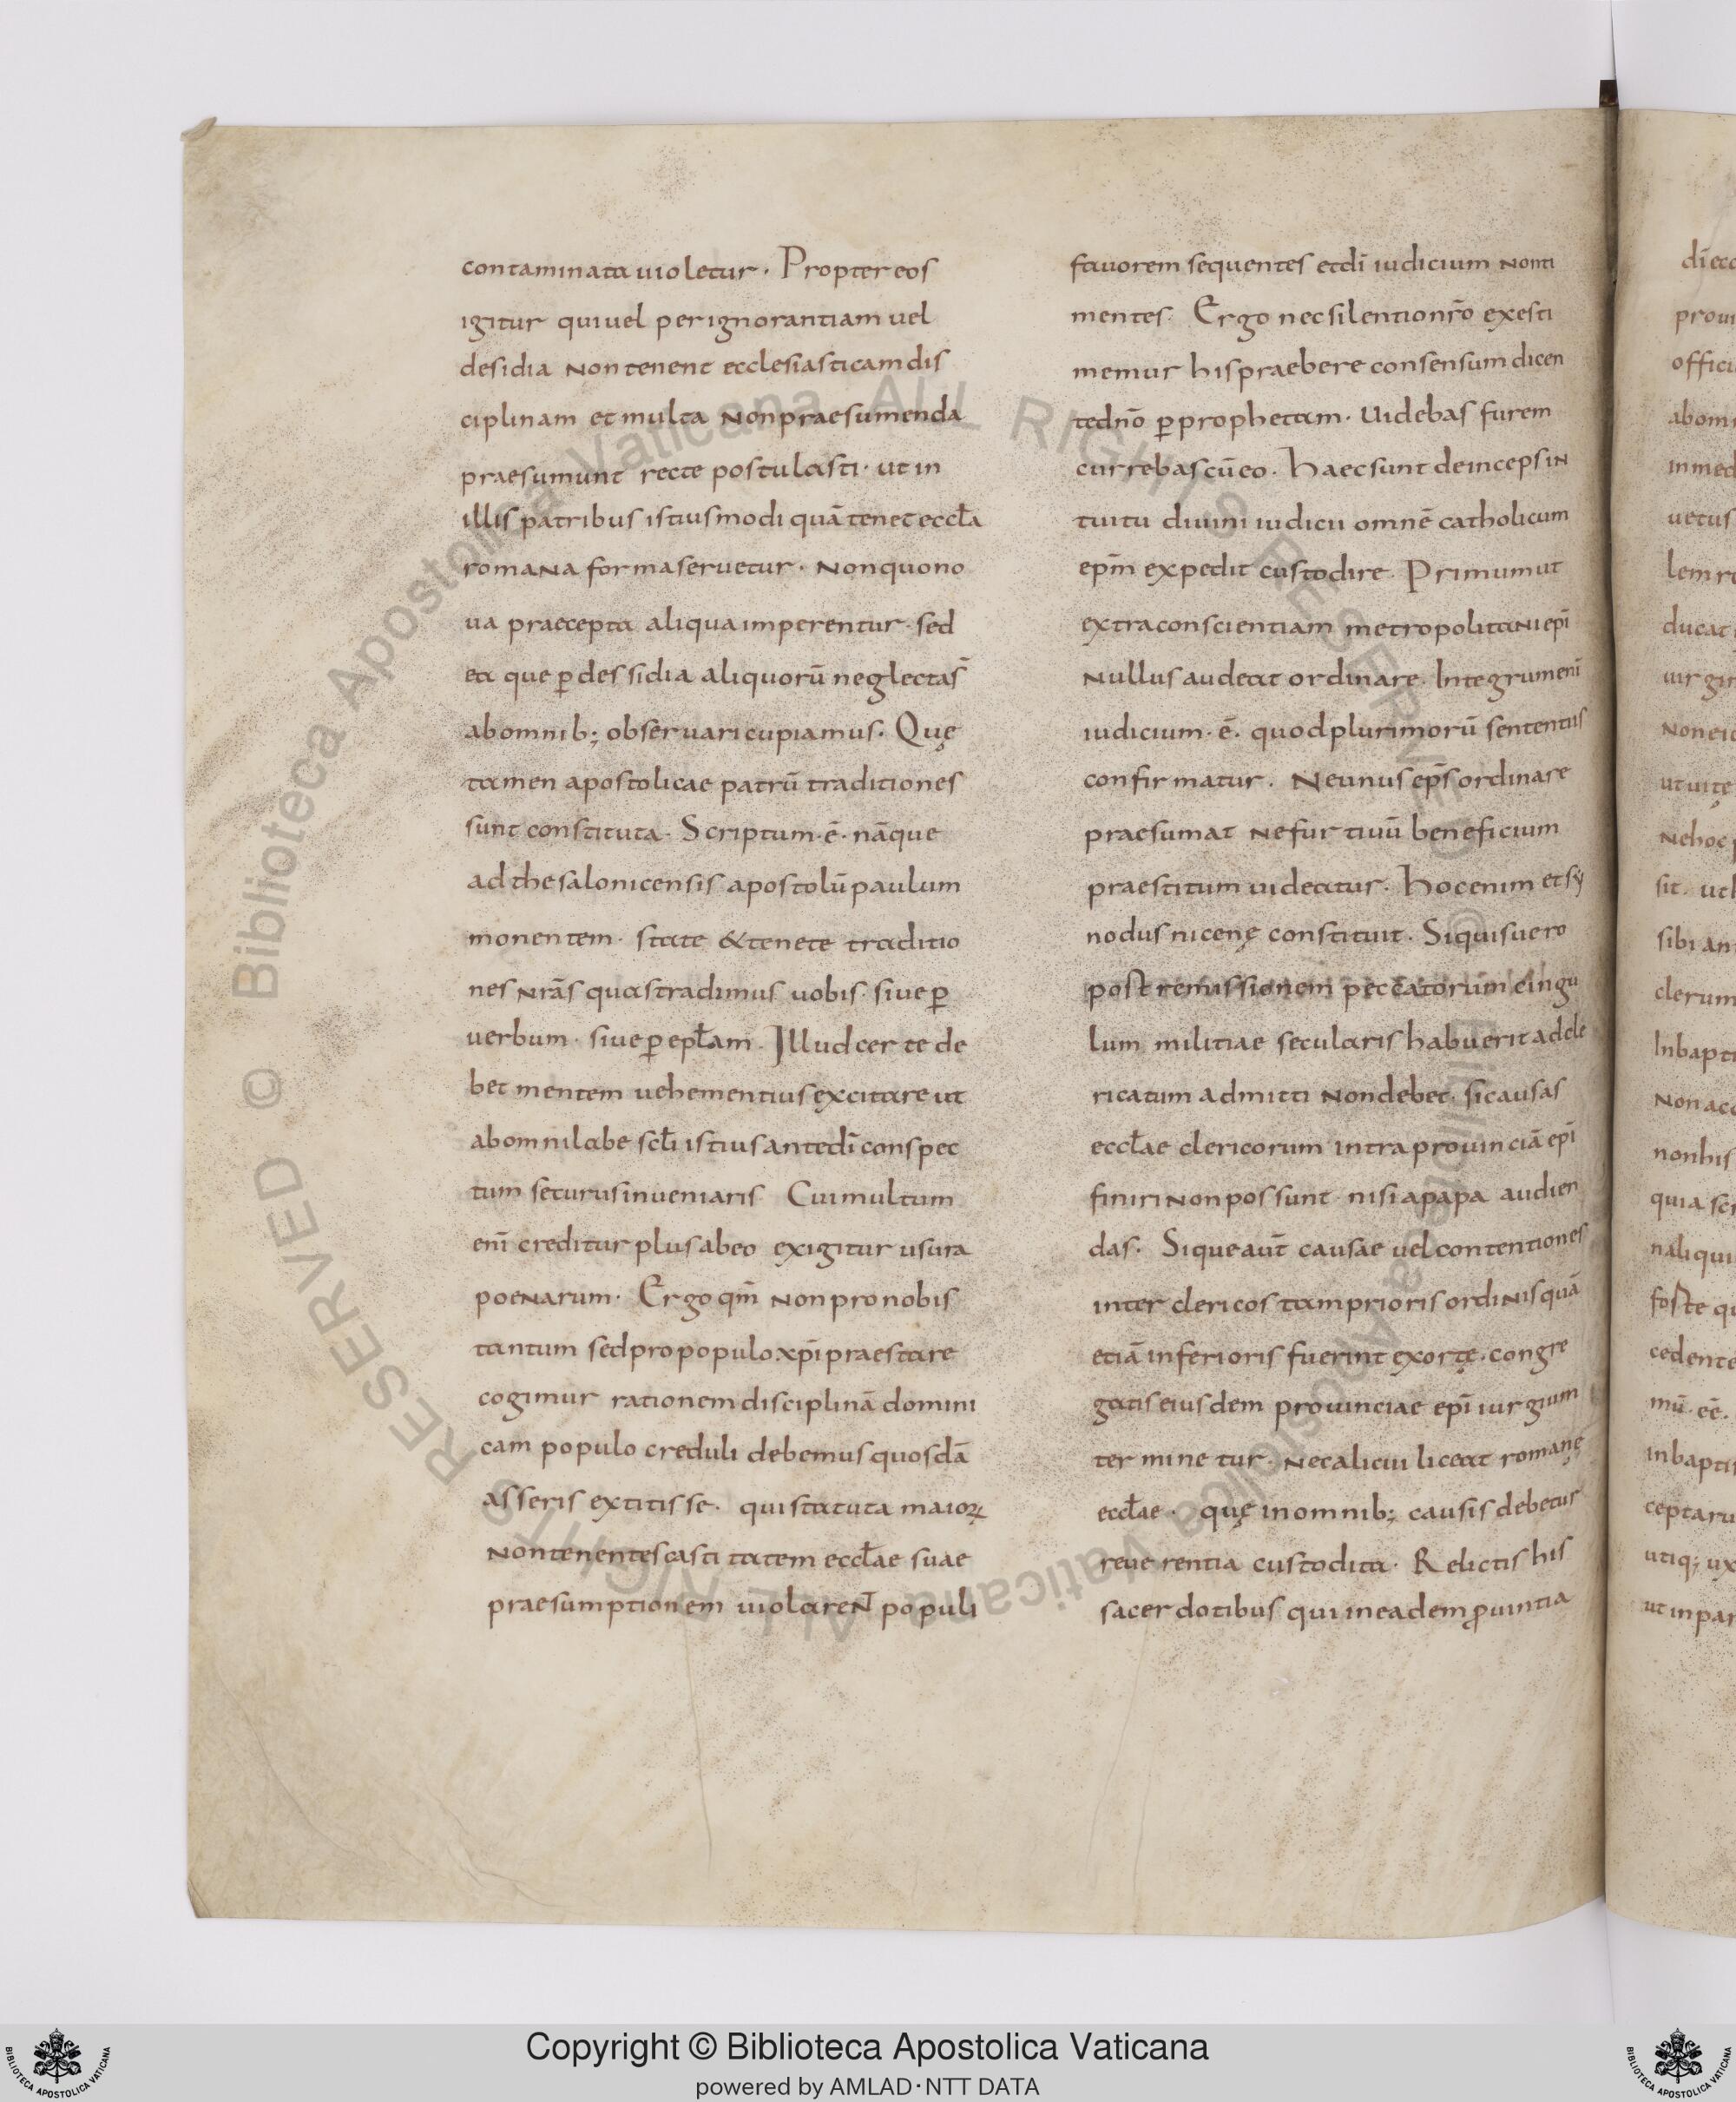 contaminata uioletur · Propter eos
igitur qui uel per ignorantiam uel
desidia non tenent ecclesiasticam dis
ciplinam et multa non praesumenda
praesumunt recte postulasti · ut in
illis patribus istiusmodi quā tenet eccƚa
romana forma seruetur · non quo no
ua praecepta aliqua imperentur · sed
ea que ꝑ dessidia aliquorū neglecta s̄
ab omnib; obseruari cupiamus · Quę
tamen apostolicae patrū traditiones
sunt constituta · Scriptum · ē · nāque
ad thesalonicensis apostolū paulum
monentem · state & tenete traditio
nes nrās quas tradimus uobis · siue ꝑ
uerbum · siue ꝑ epƚam · Illud certe de
bet mentem uehementius excitare ut
ab omni labe scƚi istius ante dī conspec
tum securus inueniaris Cui multum
enī creditur plus ab eo exigitur usura
poenarum · Ergo qm̄ non pro nobis
tantum sed pro populo xp̄i praestare
cogimur rationem disciplinā domini
cam populo creduli debemus quosdā
asseris extitisse · qui statuta maioꝝ
non tenentes castitatem eccƚae suae
praesumptionem uiolareN̄ populi
fauorem sequentes et dī iudicium non ti
mentes · Ergo nec silentio nr̄o exesti
memur his praebere consensum dicen
te dnō ꝑ prophetam · Uidebas furem
currebas cū eo · Haec sunt deinceps in
tuitu diuini iudicii omnē catholicum
epm̄ expedit custodire · Primum ut
extra conscientiam metropolitani epī
nullus audeat ordinare · Integrum enī
iudicium · ē · quod plurimorū sententiis
confirmatur · Ne unus ep̄s ordinare
praesumat ne furtiuū beneficium
praestitum uideatur · Hoc enim et sy
nodus nicenę constituit · Si quis uero
post remissionem peccatorum cingu
lum militiae secularis habuerit ad cle
ricatum admitti non debet · si causas
eccƚae clericorum intra prouinciā epī
finiri non possunt · nisi a papa audien
das · Si que aut̄ causae uel contentiones
inter clericos tam prioris ordinis quā
etiā inferioris fuerint exortę · congre
gatis eiusdem prouinciae epī iurgium
terminetur · nec alicui liceat romanę
eccƚae · quę in omnib; causis debetur
reuerentia custodita · Relictis his
sacerdotibus qui in eadem ꝓuintia
Biblioteca Apostolica Vaticana ALL RIGHTS RESERVED ©
Copyright © Biblioteca Apostolica Vaticana
powered by AMLAD·NTT DATA